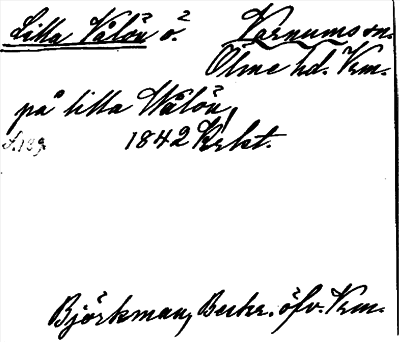 Lilla Vålön ö. Varnums sn.
Ölme hd. Vrm.
på lilla Wålön,
s. 139 1842 Krkt.
Björkman, Beskr. öfv. Vrm.